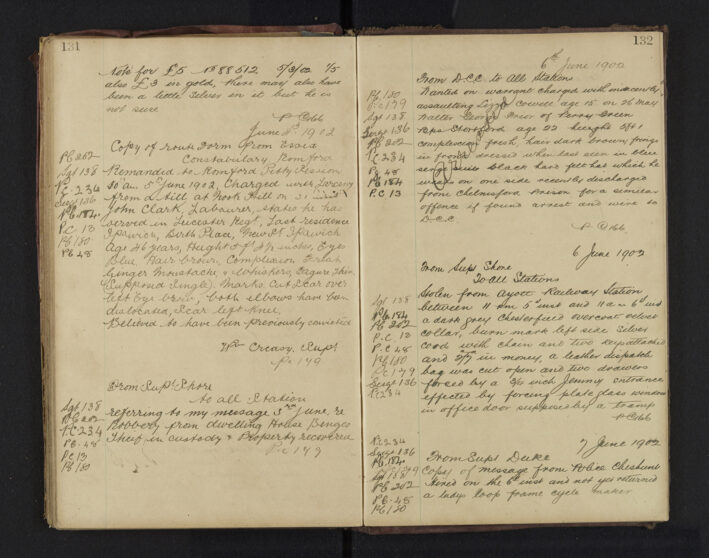 131
Note for £5 No 88512 5/3/02 4/5
also £3 in gold, there may also have
been a little silver in it but he is
not sure
PC 166
June 5th 1902
Copy of route form from Essex
Constabulary Romford
Remanded to Romford Petty Session
10 am 5th June 1902, Charged with Larceny
from a till at North Hill on 31
John Clark, Labourer, states he has
served in Leicester Regt, Last residence
Ipswich, Birth Place, New St Ipswich
Age 46 years, Height 5ft 4 1/2 inches, Eyes
Blue Hair brown, Complexion Fresh
Ginger Moustache, & Whiskers, Figure Thin
(Supposed Single) Marks Cut Scar over
left Eye brow, both elbows have been
dislocated, Scar left knee,
Believed to have been previously convicted
Wm Creasy, Supt
Pc 149
PC 202
Sgt 138
P.C. 234
Sergt 136
PC 184
P.C. 13
PC 180
PC 48
From Supt Shore
to all Station
referring to my message 3rd June, re
Robbery from dwelling House Bengeo
Thief in custody & Property recovered
Pc 149
Sgt 138
PC 202
P.C 234
PC. 48
PC 13
PC 180
132
6th June 1902
From D.C.C to All Stations
Wanted on warrant charged with indecently
assaulting Lizzie Cowell age 15 on 26 May
Walter George Prior of Perry Green
Bps Stortford age 22 height 5ft 1
complexion fresh, hair dark brown, fringe
in front dressed when last seen in blue
serge suit black hard felt hat which he
wears on one side recently discharged
from Chelmsford Prison for a similar
offence if found arrest and wire to
D.C.C.
PC 166
PC 180
PC 179
Sgt 138
Sergt 136
PC 202
P.C 234
PC 48
PC 184
P.C. 13
6 June 1902
From Supt Shore
To all Stations
Stolen from Ayott Railway Station
between 11 pm 5th inst and 11 am 6th inst
a dark grey Chesterfield overcoat velvet
collar, burn mark left side Silver
cord with chain and two keys attached
and in money, a leather dispatch
bag was cut open and two drawers
forced by a 5/8 inch Jemmy entrance
effected by forcing plate glass window
in office door supposed by a tramp
PC 166
Sgt 138
PC 184
PC 202
P.C. 13
P.C 48
PC 180
PC 179
Sergt 136
PC 234
7 June 1902
From Supt Duke
Copy of message from Police Cheshunt
Hired on the 6th inst and not yet returned
a ladys loop frame cycle maker
PC 234
Sergt 136
PC 184
PC 179
Sgt 138
PC 202
PC. 48
PC 180